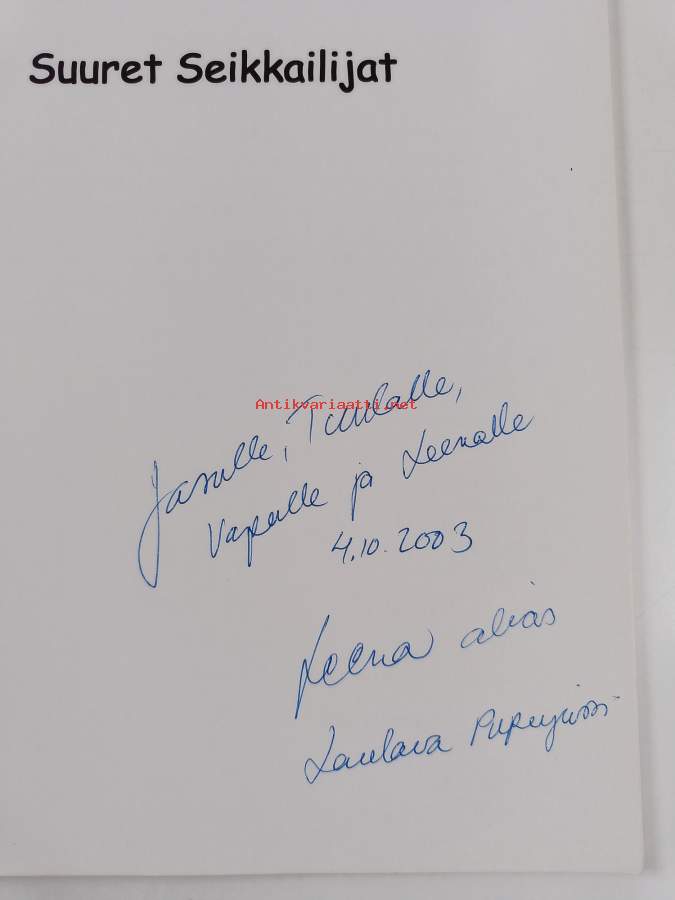 Suuret Seikkailijat
Antikvariaatti.net
Jasulle, Tuulalle,
Vapulle ja Leenalle
4.10.2003
Leena alias
Laulava